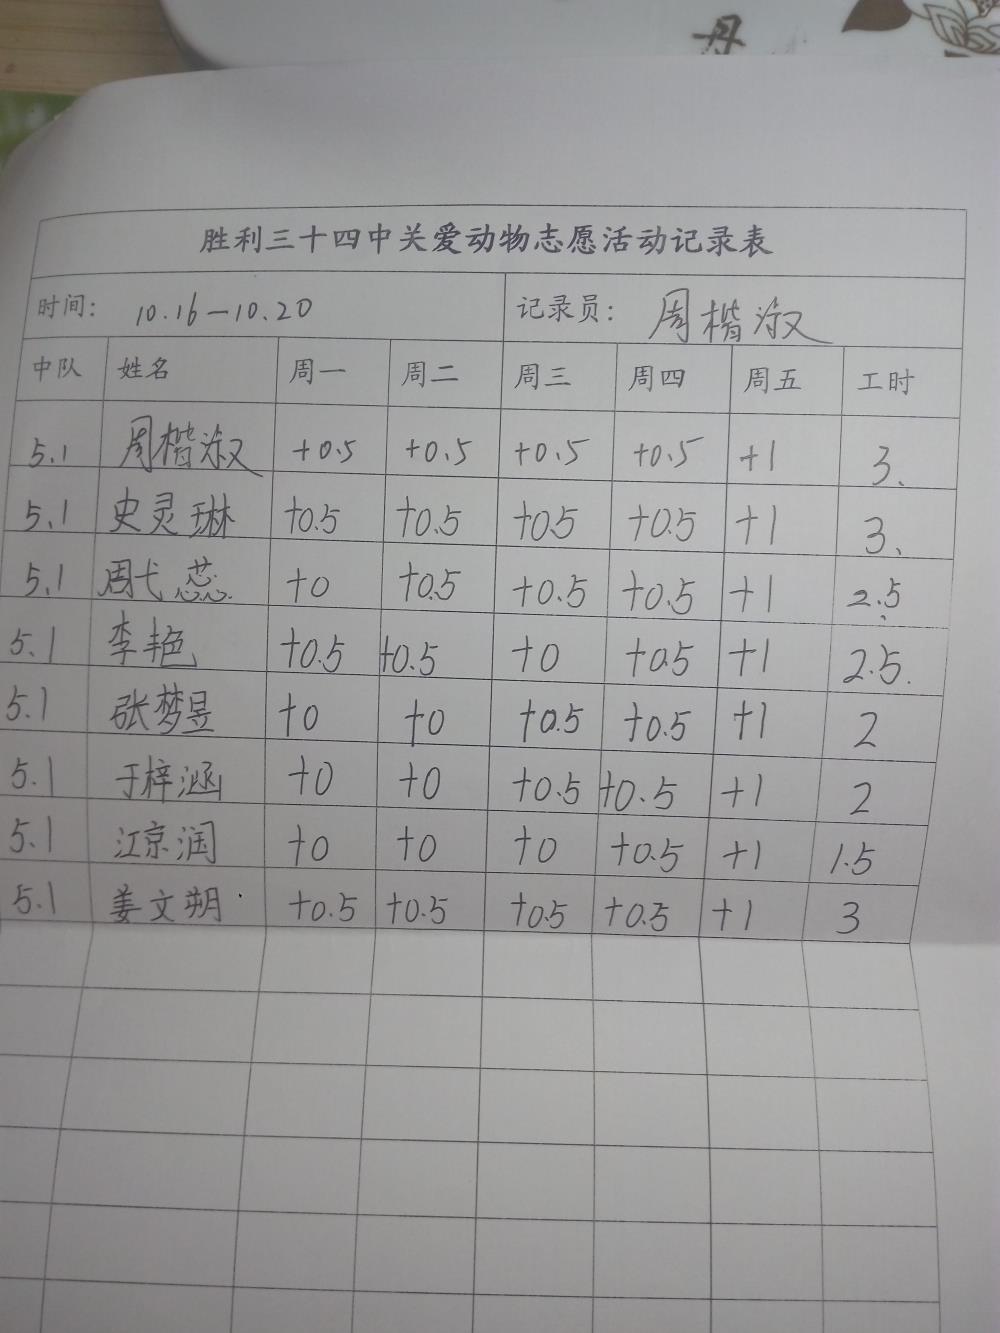 丹
胜利三十四中关爱动物志愿活动记录表
时间: 10.16—10.20 记录员: 周楷淑
中队 姓名 周一 周二 周三 周四 周五 工时
5.1 周楷淑 +0.5 +0.5 +0.5 +0.5 +1 3.
5.1 史灵琳 +0.5 +0.5 +0.5 +0.5 +1 3.
5.1 周弋蕊 +0 +0.5 +0.5 +0.5 +1 2.5
5.1 李艳 +0.5 +0.5 +0 +0.5 +1 2.5.
5.1 张梦昱 +0 +0 +0.5 +0.5 +1 2
5.1 于梓涵 +0 +0 +0.5 +0.5 +1 2
5.1 江京润 +0 +0 +0 +0.5 +1 1.5
5.1 姜文朔 +0.5 +0.5 +0.5 +0.5 +1 3